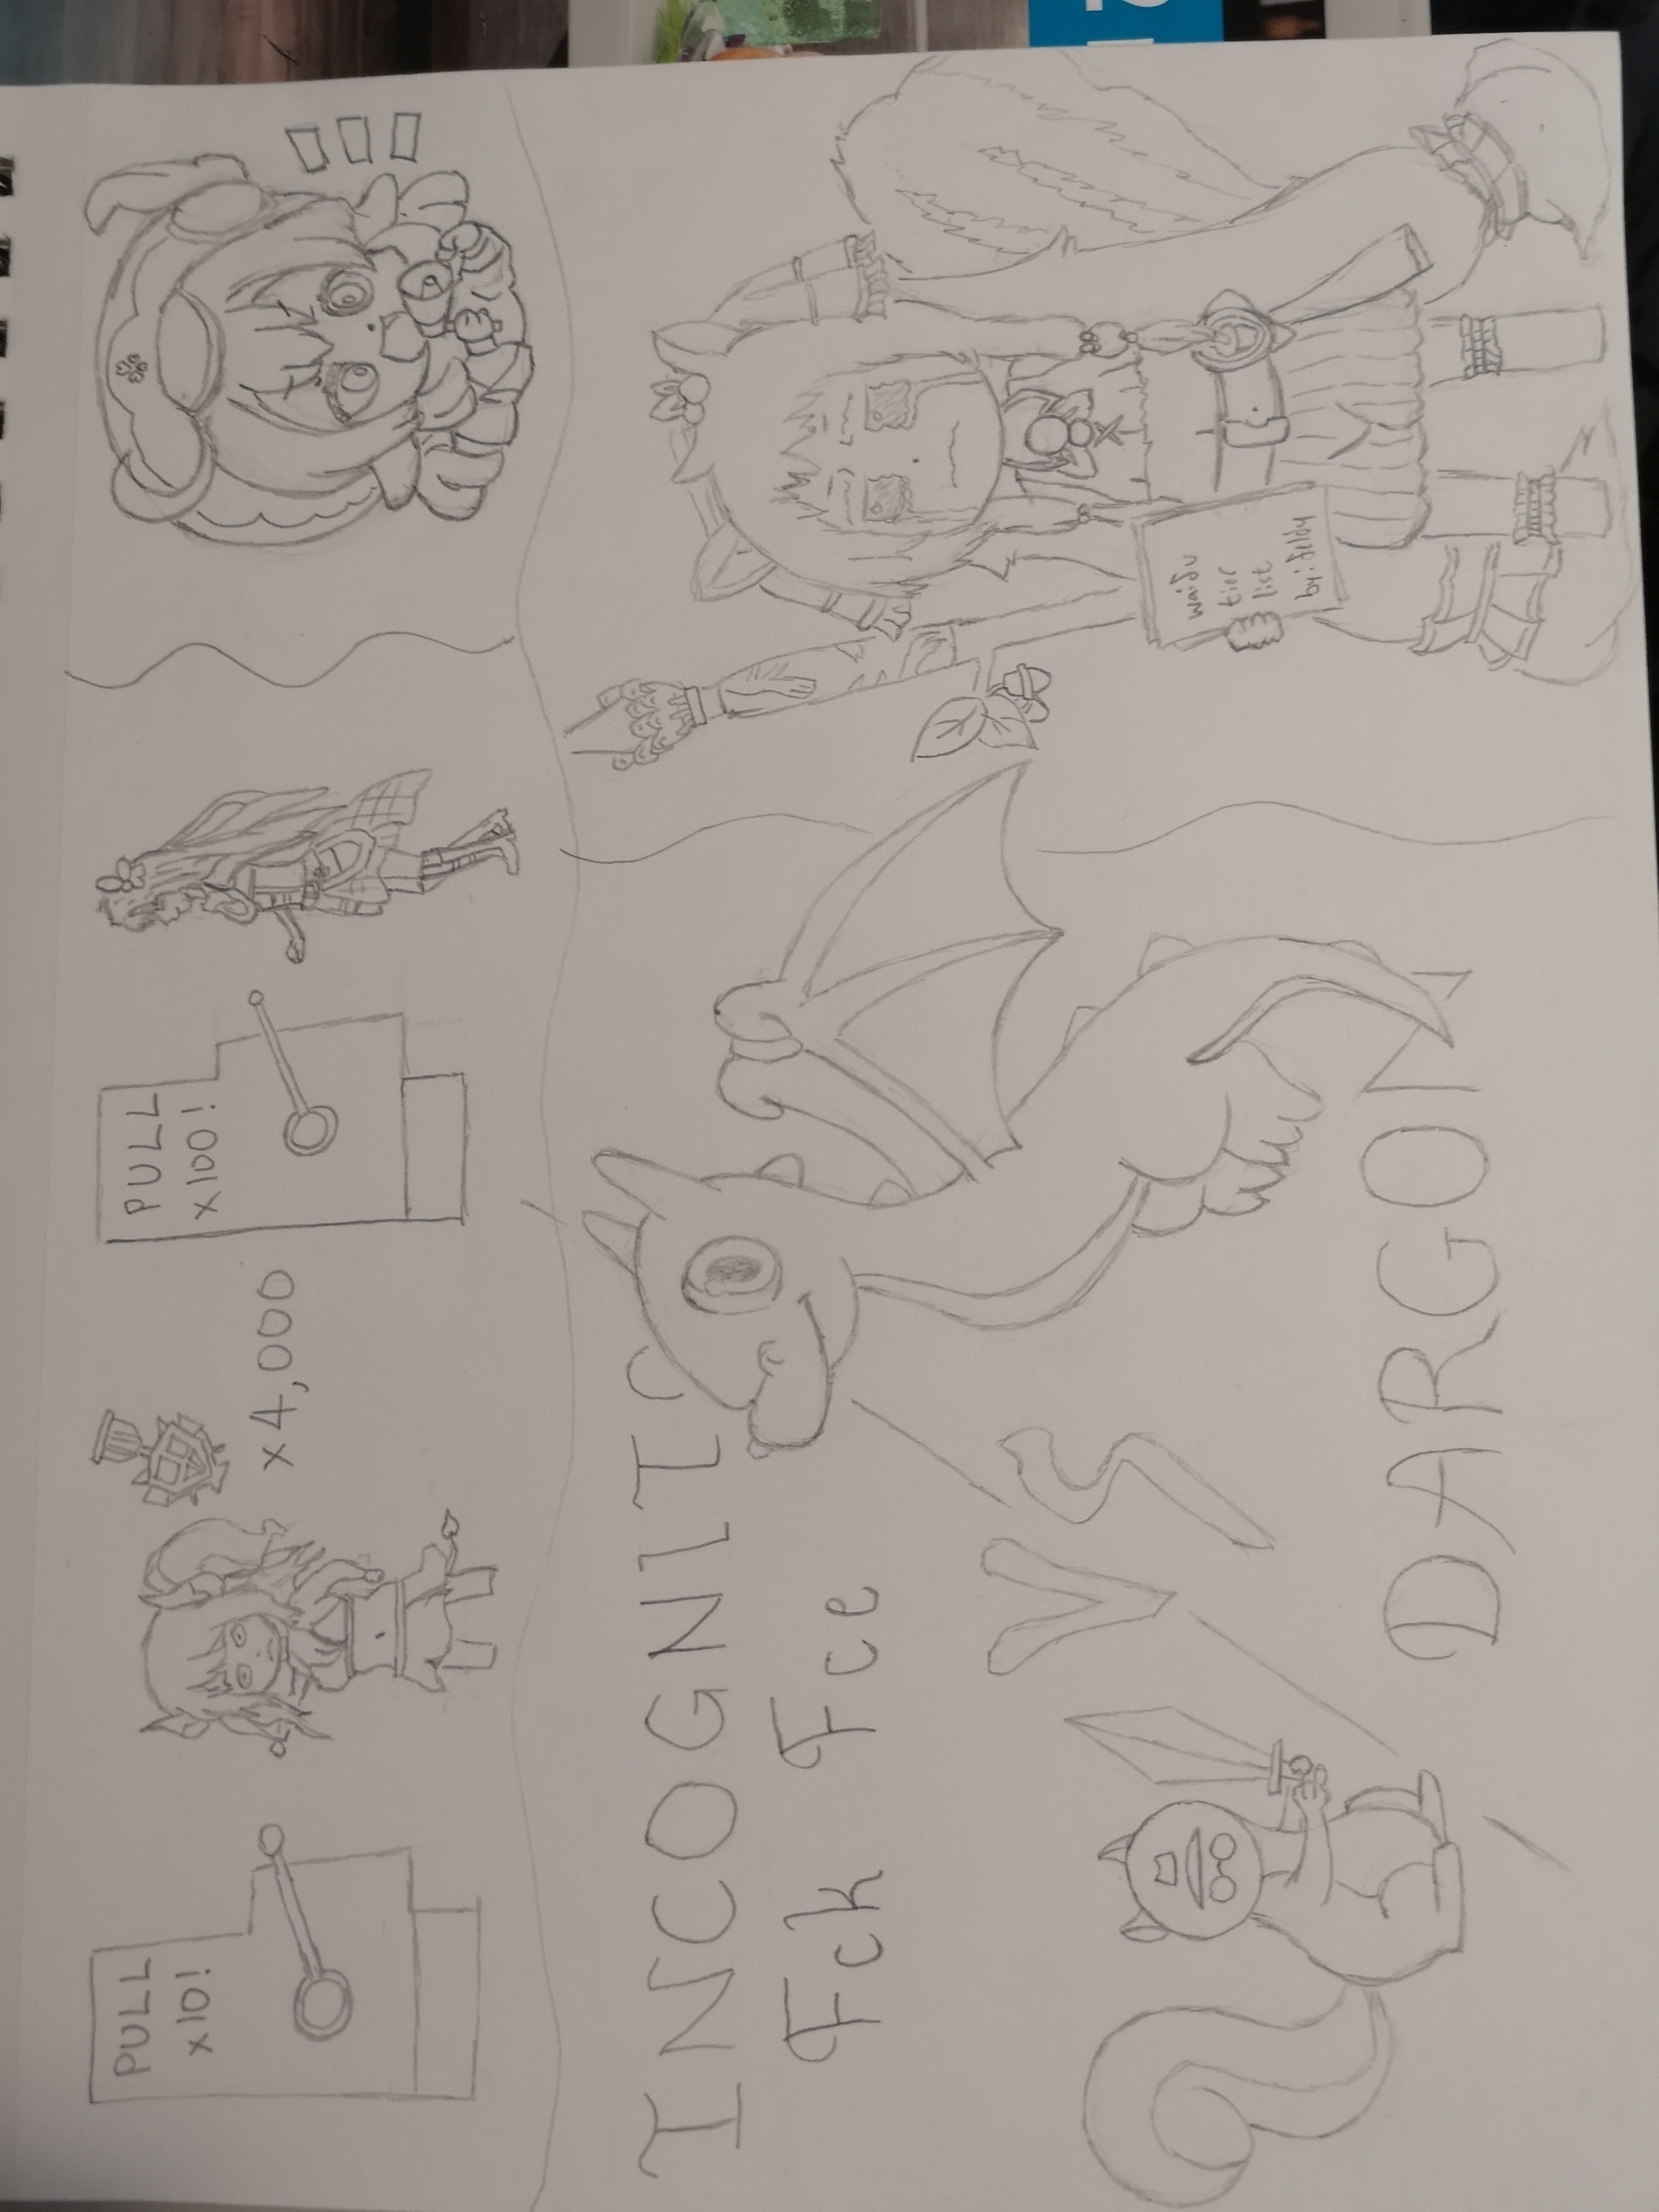 PULL
x10!
x4,000
PULL
x100!
INCOGNITO
Fck Fce
VS
DARGON
waifu
tier
list
by: feldy